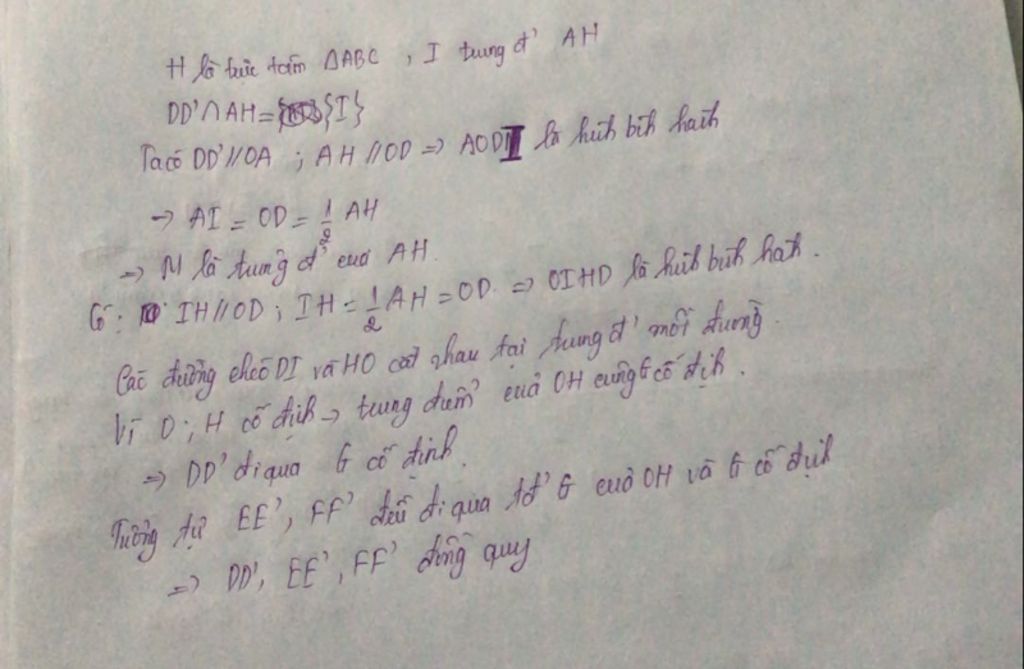 H là trực tâm ΔABC , I trung đ' AH
DD'∩AH={I}
Ta có DD'//OA ; AH//OD => AODI là hình bình hành
-> AI = OD = 1/2 AH
=> M là trung đ' của AH.
Có: IH//OD ; IH = 1/2 AH = OD. => OIHD là hình bình hành.
Các đường chéo DI và HO cắt nhau tại trung đ' mỗi đường.
Vì O ; H cố định -> trung điểm của OH cũng G cố định.
=> DD' đi qua G cố định.
Tương tự EE', FF' đều đi qua tđ' G của OH và G cố định
=> DD', EE', FF' đồng quy